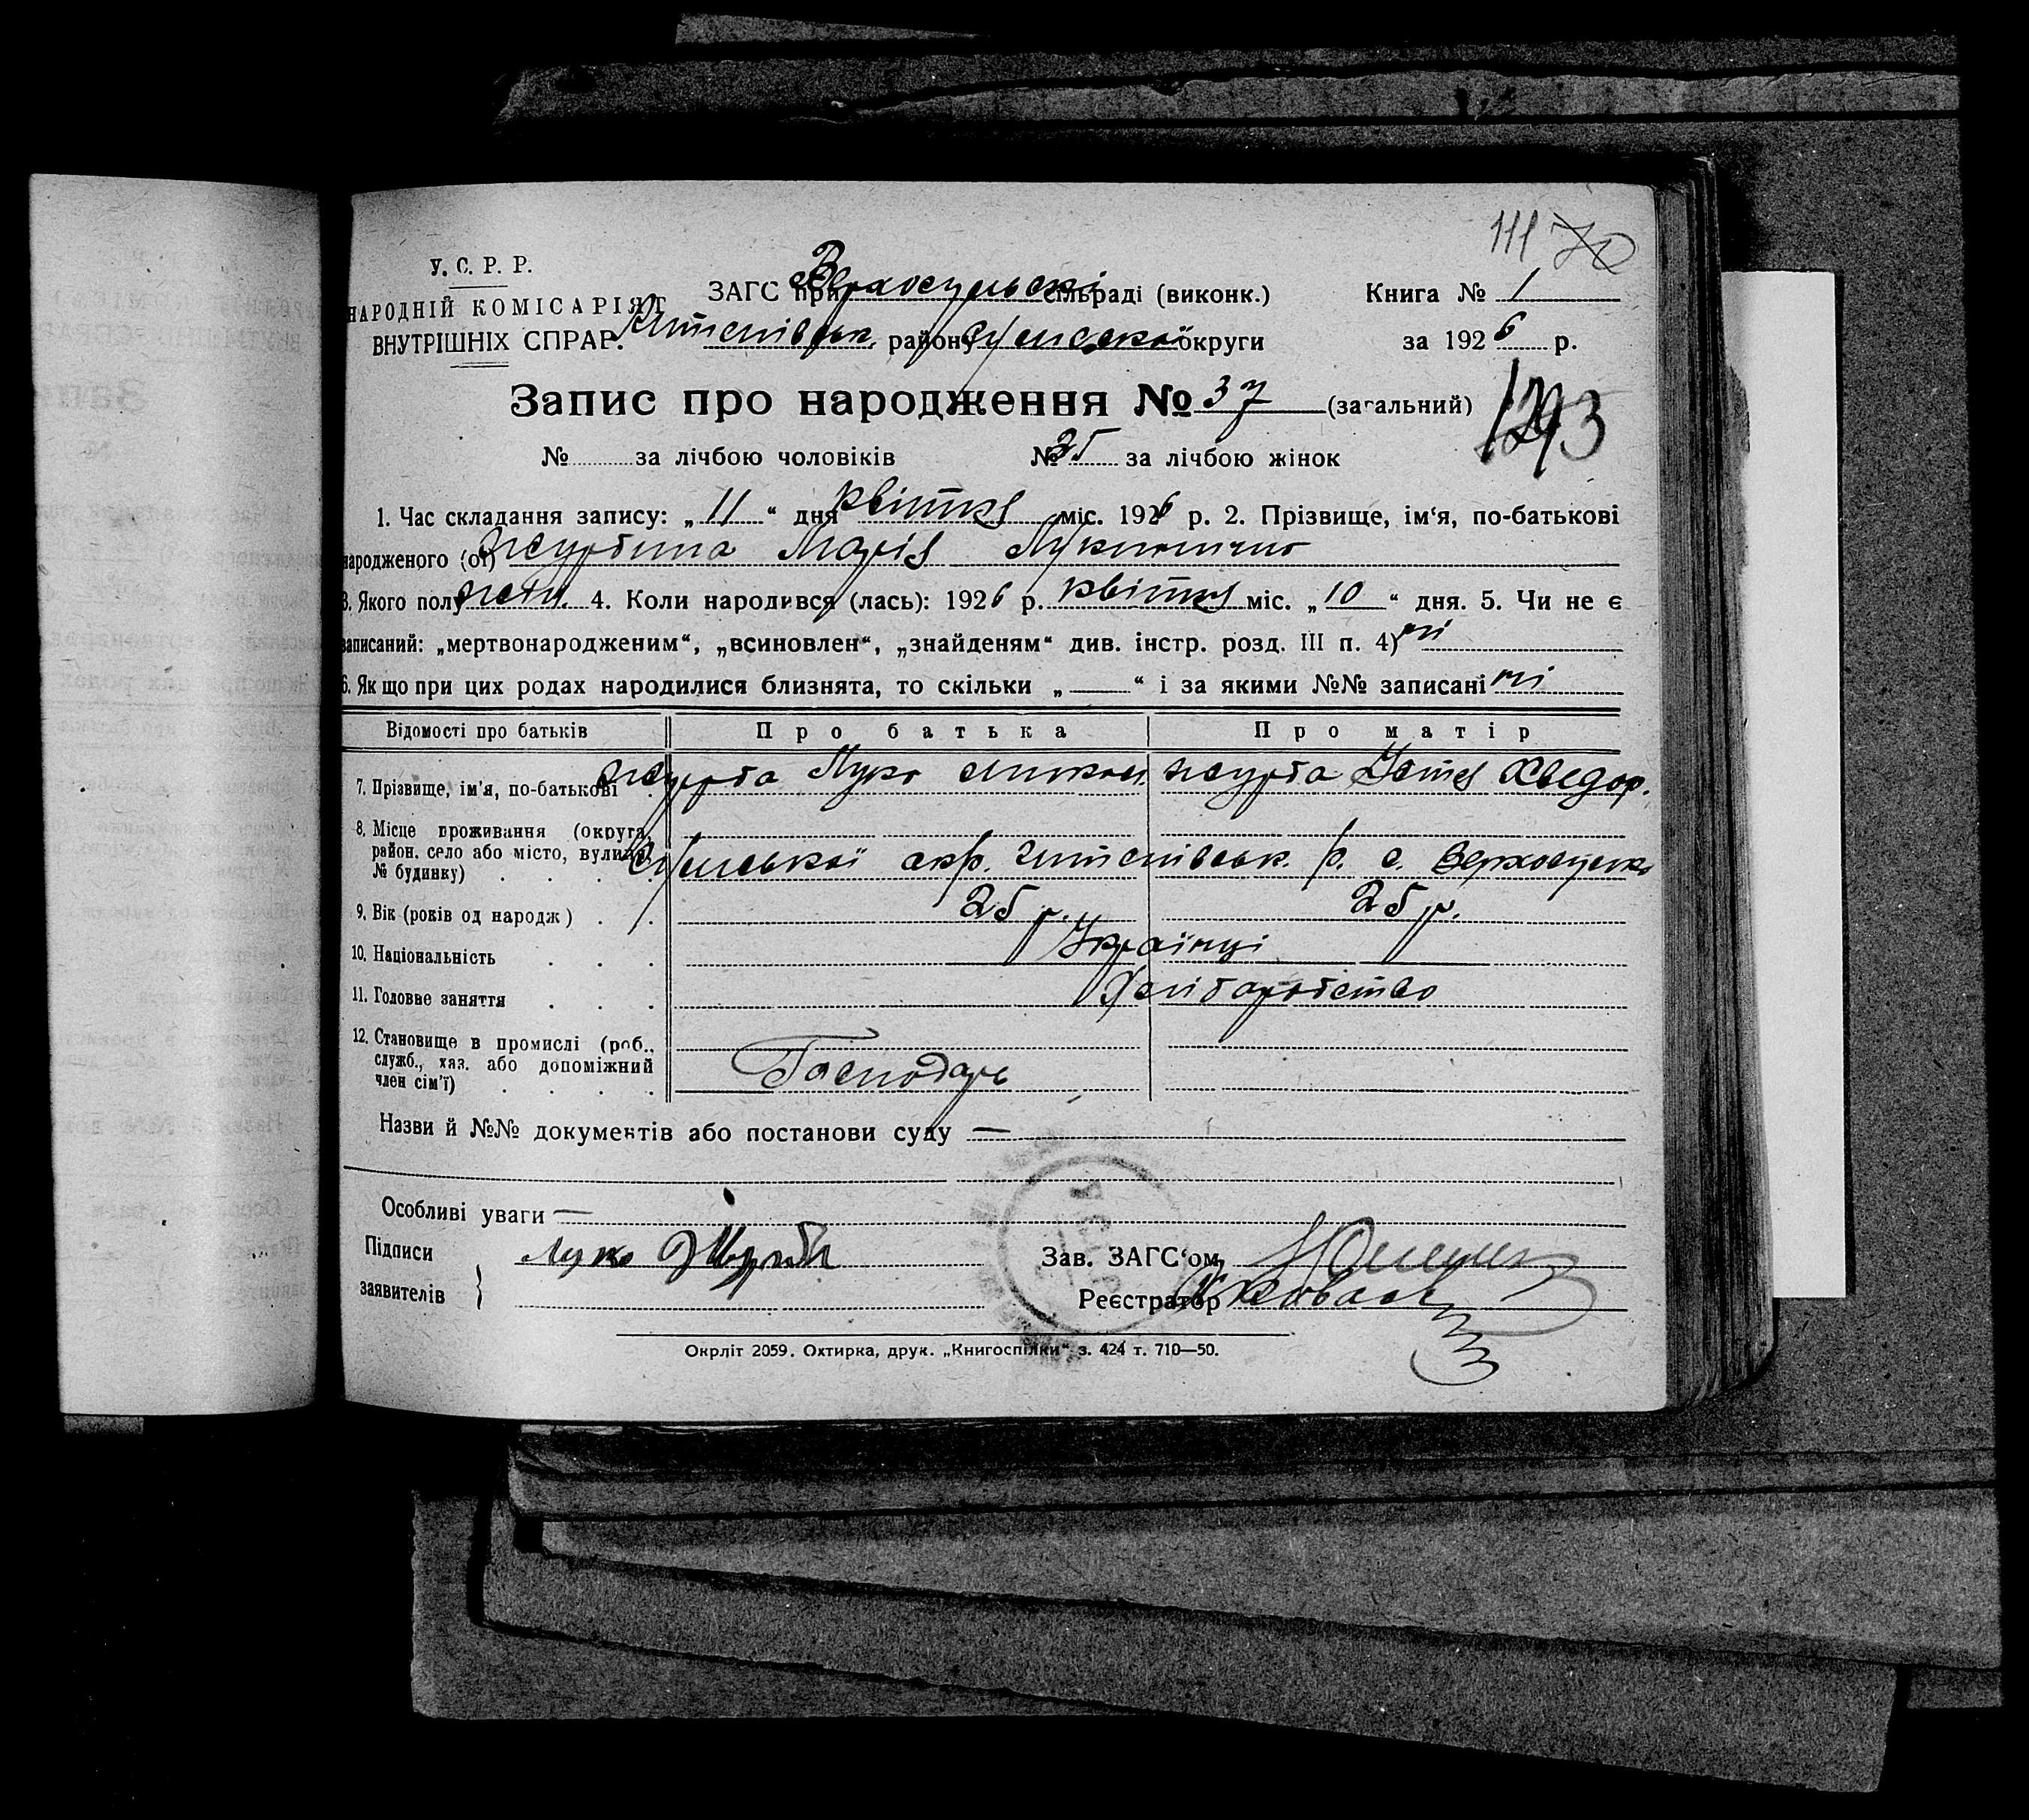 111 70
У. С. Р. Р.
НАРОДНІЙ КОМІСАРІЯТ
ВНУТРІШНІХ СПРАВ.
ЗАГС при Верхосульскі сільраді (виконк.)
Штепівськ. району Сумської округи
Книга № 1
за 1926 р.
Запис про народження № 37 (загальний)
1293
№ за лічбою чоловіків № 25 за лічбою жінок
1. Час складання запису: „11“ дня квітня міс. 1926 р. 2. Прізвище, ім‘я, по-батькові
народженого (ої) Журбина Марія Лукинична
3. Якого полу жети. 4. Коли народився (лась): 1926 р. квітня міс. „10“ дня. 5. Чи не є
записаний: „мертвонародженим“, „всиновлен“, „знайденям“ див. інстр. розд. III п. 4) ні
6. Якщо при цих родах народилися близнята, то скільки „ “ і за якими №№ записані ні
Відомості про батьків Про батька Про матір
7. Прізвище, ім‘я, по-батькові Журба Лука Журба Устя Хведор.
8. Місце проживання (округа,
район. село або місто, вулиця,
№ будинку) Сумської окр. Штепівськ. р. с. Верхосулка
9. Вік (років од народж) 25 р. 25 р.
10. Національність Українці
11. Головне заняття Хліборобство
12. Становище в промислі (роб.,
служб., хаз. або допоміжний
член сім‘ї) Господарь
Назви й №№ документів або постанови суду —
Особливі уваги —
Підписи
заявителів
Лука Журба
Зав. ЗАГС‘ом
Реєстратор
Окрліт 2059. Охтирка, друк. „Книгоспілки“ з. 424 т. 710—50.